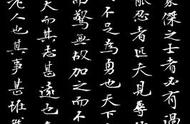 豪傑之士者必有過
能忍者匹夫見辱
不足為勇也天下
驚無故加之而不
大而其志甚遠也
老人也其事甚